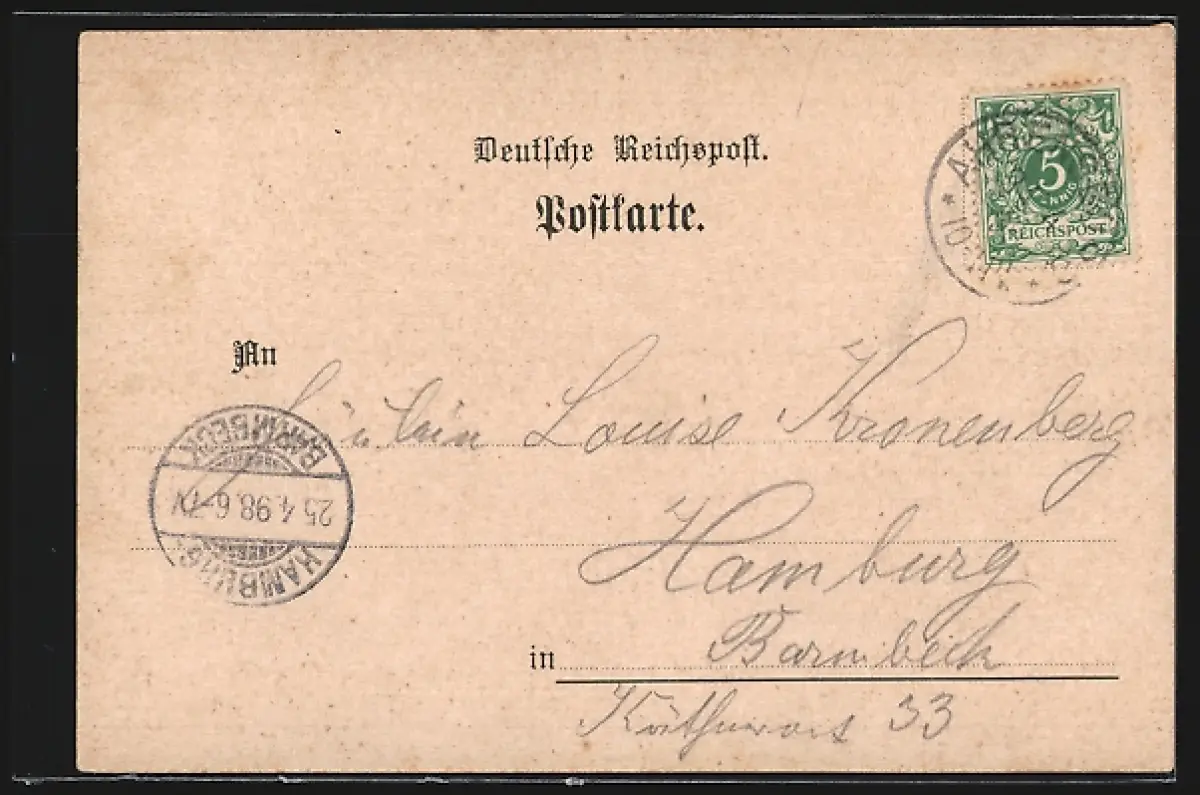 Deutsche Reichspost.
Postkarte.
5
PFENNIG
REICHSPOST
An
Fräulein Louise Kronenberg
Hamburg
in Barmbeck
33
HAMBURG
25.4.98.6-7V.
BARMBECK